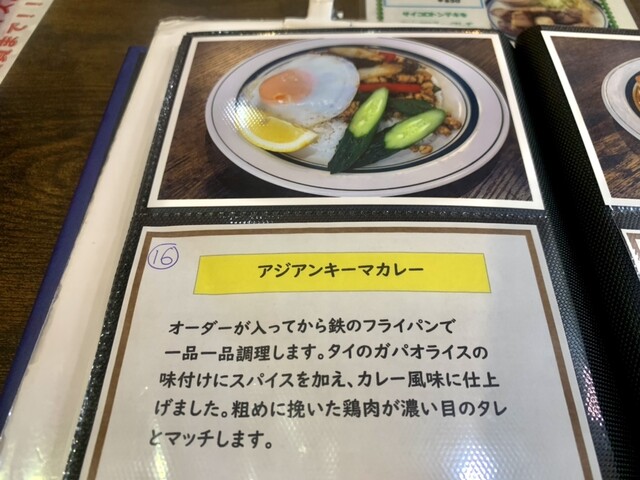 16
アジアンキーマカレー
オーダーが入ってから鉄のフライパンで
一品一品調理します。タイのガパオライスの
味付けにスパイスを加え、カレー風味に仕上
げました。粗めに挽いた鶏肉が濃い目のタレ
とマッチします。